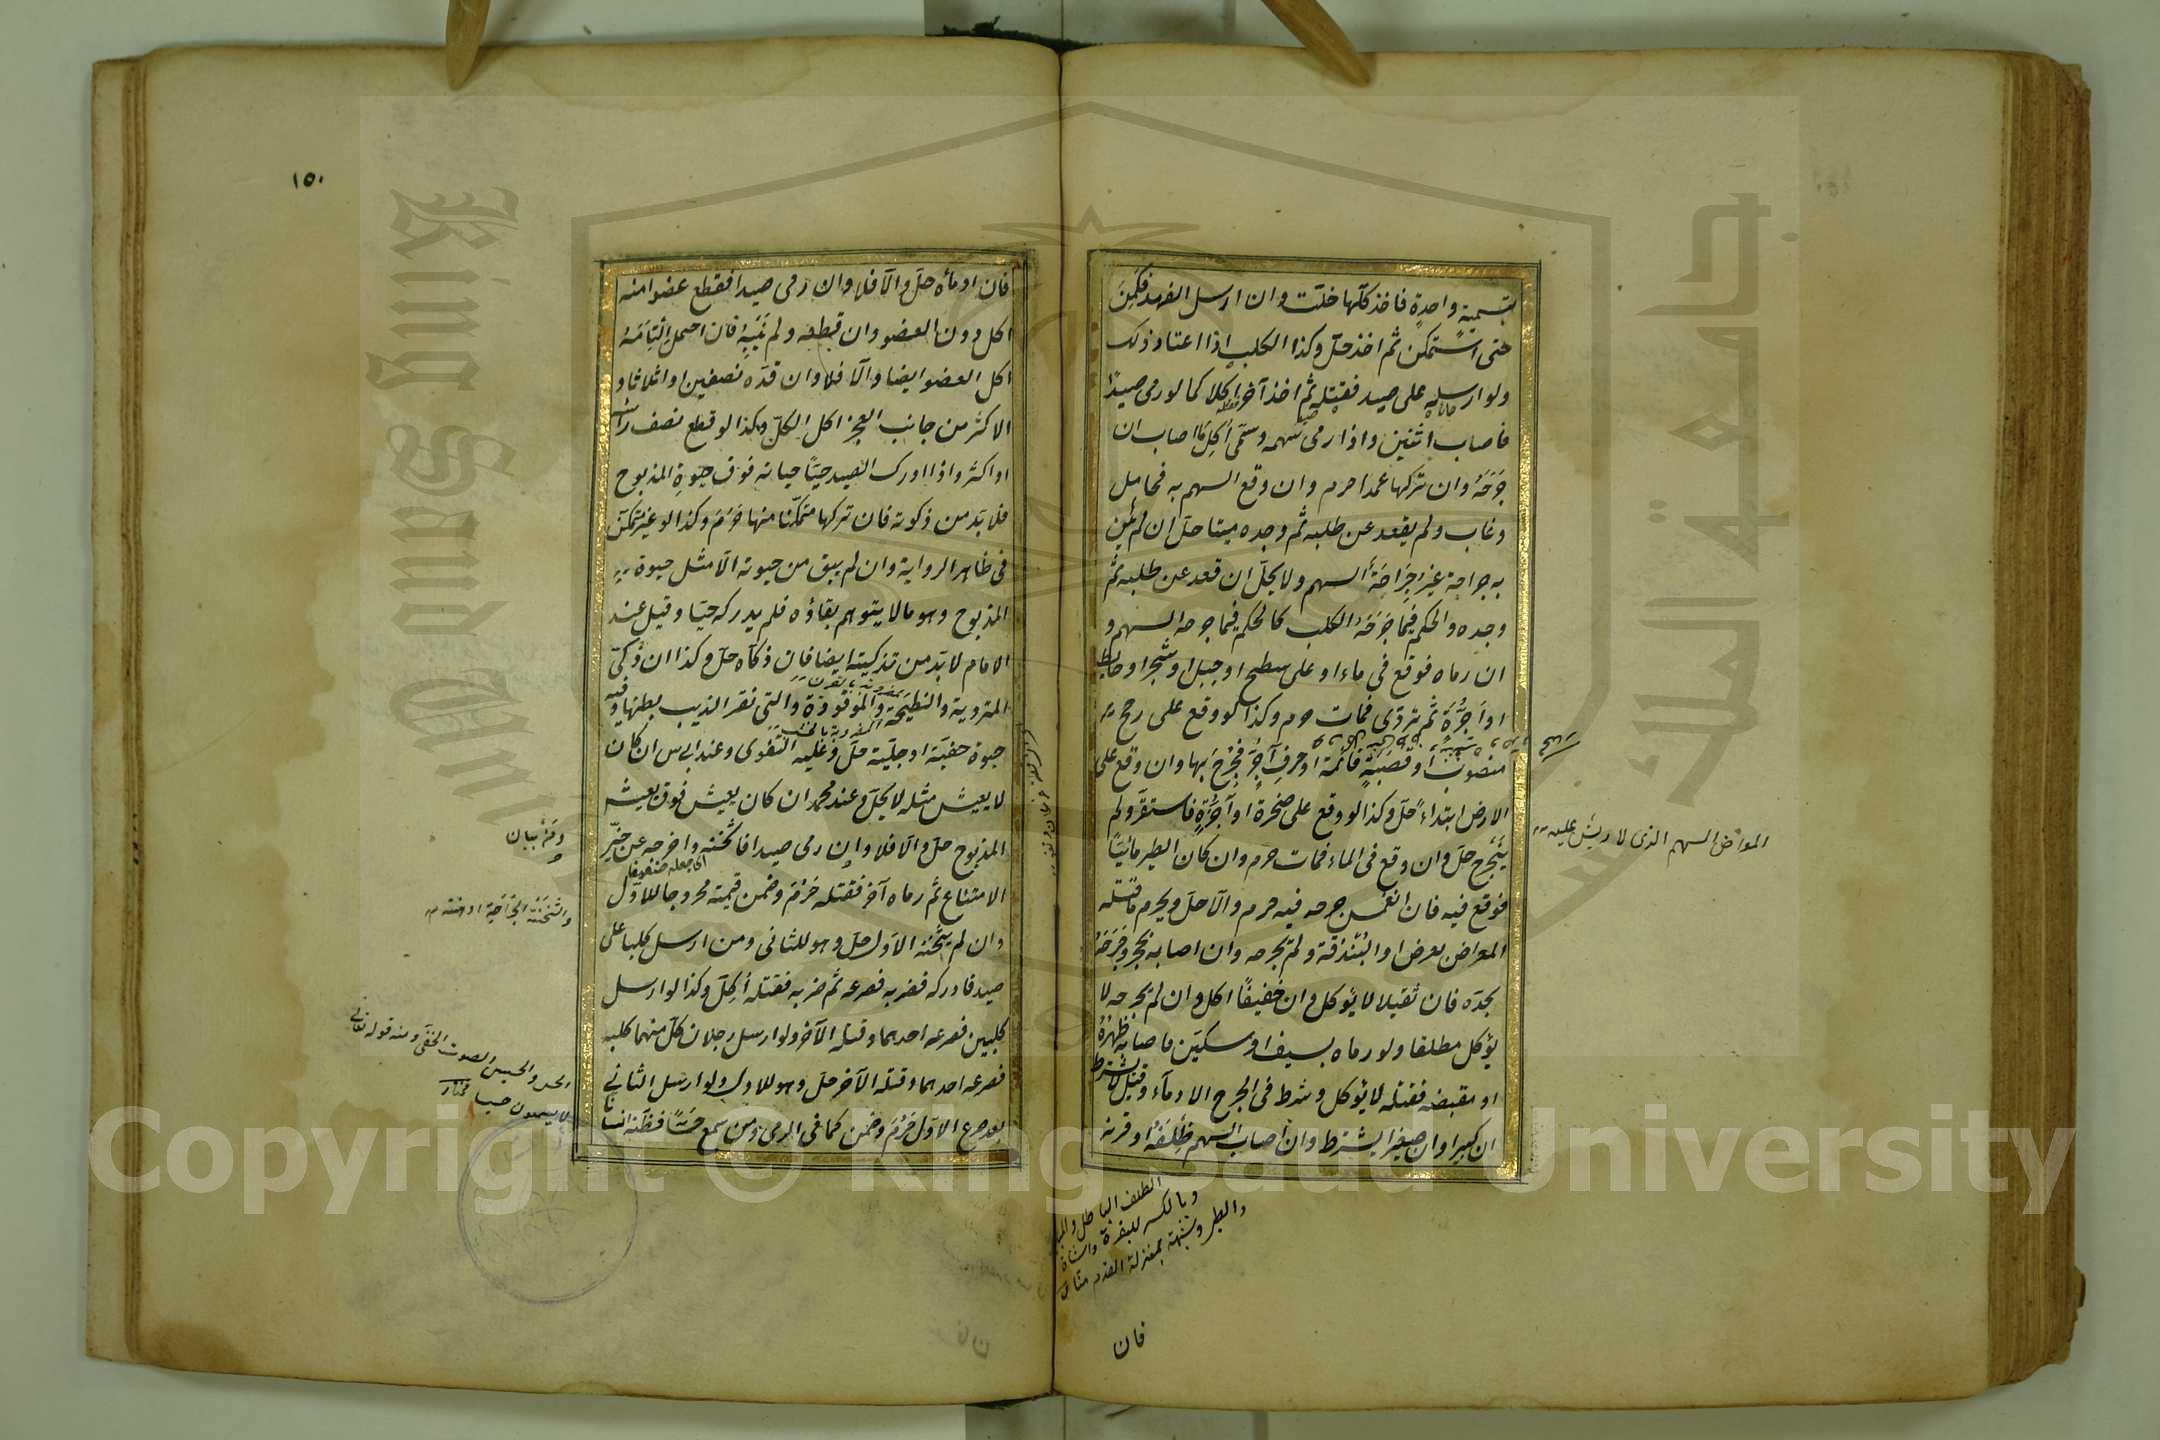 بتسمية واحدة فاخذ كلها حلت وان ارسل الفهد فكمن
حتى استمكن ثم اخذ حل وكذا الكلب اذا اعتاد ذلك
ولو ارسله على صيد فقتله ثم اخذ آخر اكلا كما لو رمى صيدا
فاصاب اثنين واذا رمى سهمه وسمى اكل ما اصاب ان
جرحه وان تركها عمدا حرم وان وقع السهم به فتحامل
وغاب ولم يقعد عن طلبه ثم وجده ميتا حل ان لم يكن
به جراحة غير جراحة السهم ولا يحل ان قعد عن طلبه ثم
وجده والحكم فيما جرحه الكلب كالحكم فيما جرحه السهم و
ان رماه فوقع فى ماء او على سطح او جبل او شجر او حائط
او آجرة ثم تردى فمات حرم وكذا لو وقع على رمح
منصوب او قصبة قائمة او حرف آجر فجرح بها وان وقع على
الارض ابتداء حل وكذا لو وقع على صخرة او آجرة فاستقر ولم
ينجرح حل وان وقع فى الماء فمات حرم وان كان الطير مائيا
فوقع فيه فان انغمس جرحه فيه حرم والا حل ويحرم ما قتله
المعراض بعرضه او البندقة ولم يجرحه وان اصابه بحجر وجرحه
بحده فان ثقيلا لا يؤكل وان خفيفا اكل وان لم يجرحه لا
يؤكل مطلقا ولو رماه بسيف او سكين فاصابه ظهره
او مقبضه فقتله لا يؤكل وشرط فى الجرح الادماء وقيل لا يشترط
ان كبيرا وان صغيرا يشترط وان اصاب السهم ظلفه او قرنه
المعراض السهم الذى لا ريش عليه
وبالكسر للبقرة والشاة
فان
١٥٠
فان ادماه حل والا فلا وان رمى صيدا فقطع عضوا منه
اكل دون العضو وان قطعه ولم يبنه فان احتمل التيامه
اكل العضو ايضا والا فلا وان قده نصفين او اثلاثا و
الاكثر من جانب العجز اكل الكل وكذا لو قطع نصف راسه
او اكثر واذا ادرك الصيد حيا حياته فوق حيوة المذبوح
فلا بد من ذكوته فان تركها متمكنا منها حرم وكذا لو غير متمكن
فى ظاهر الرواية وان لم يبق من حيوته الا مثل حيوة
المذبوح وهو ما لا يتوهم بقاؤه فلم يدركه حيا وقيل عند
الامام لا بد من تذكيته ايضا فان ذكاه حل وكذا ان ذكى
المتردية والنطيحة والموقوذة والتى نقر الذيب بطنها وفيه
حيوة خفية او جلية حل وعليه الفتوى وعند ابى س ان كان
لا يعيش مثله لا يحل وعند محمد ان كان يعيش فوق يعيش
المذبوح حل والا فلا وان رمى صيدا فاثخنه واخرجه عن حيز
الامتناع ثم رماه آخر فقتله حرم وضمن قيمته مجروحا للاول
وان لم يثخنه الاول حل وهو للثانى ومن ارسل كلبا على
صيد فادركه فضربه فصرعه ثم ضربه فقتله اكل وكذا لو ارسل
كلبين فصرعه احدهما وقتله الآخر ولو ارسل رجلان كل منهما كلبه
فصرعه احدهما وقتله الآخر حل وهو للاول ولو ارسل الثانى
بعد صرع الاول حرم وضمن كما فى الرمى ومن سمع حسا فظنه انسانا
الحس والحسيس الصوت الخفى ومنه قوله تعالى
لا يسمعون حسيسها مختار
Copyright © King Saud University
King Saud University
جامعة الملك